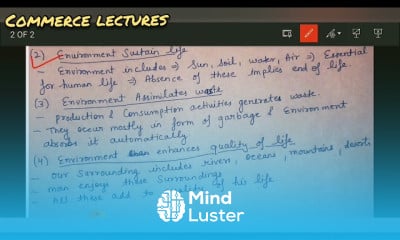 COMMERCE LECTURES
2 OF 2
(2) Environment Sustain life
- Environment includes ⇒ Sun, Soil, water, Air ⇒ Essential
for human life ⇒ Absence of these implies end of life.
(3) Environment Assimilates waste
- production & Consumption activities generates waste.
- They occur mostly in form of garbage & Environment
absorbs it automatically
(4) Environment enhances quality of life
- Our surrounding includes rivers, oceans, mountains, deserts
- man enjoys these surroundings
- All these add to quality of his life
Mind
Luster